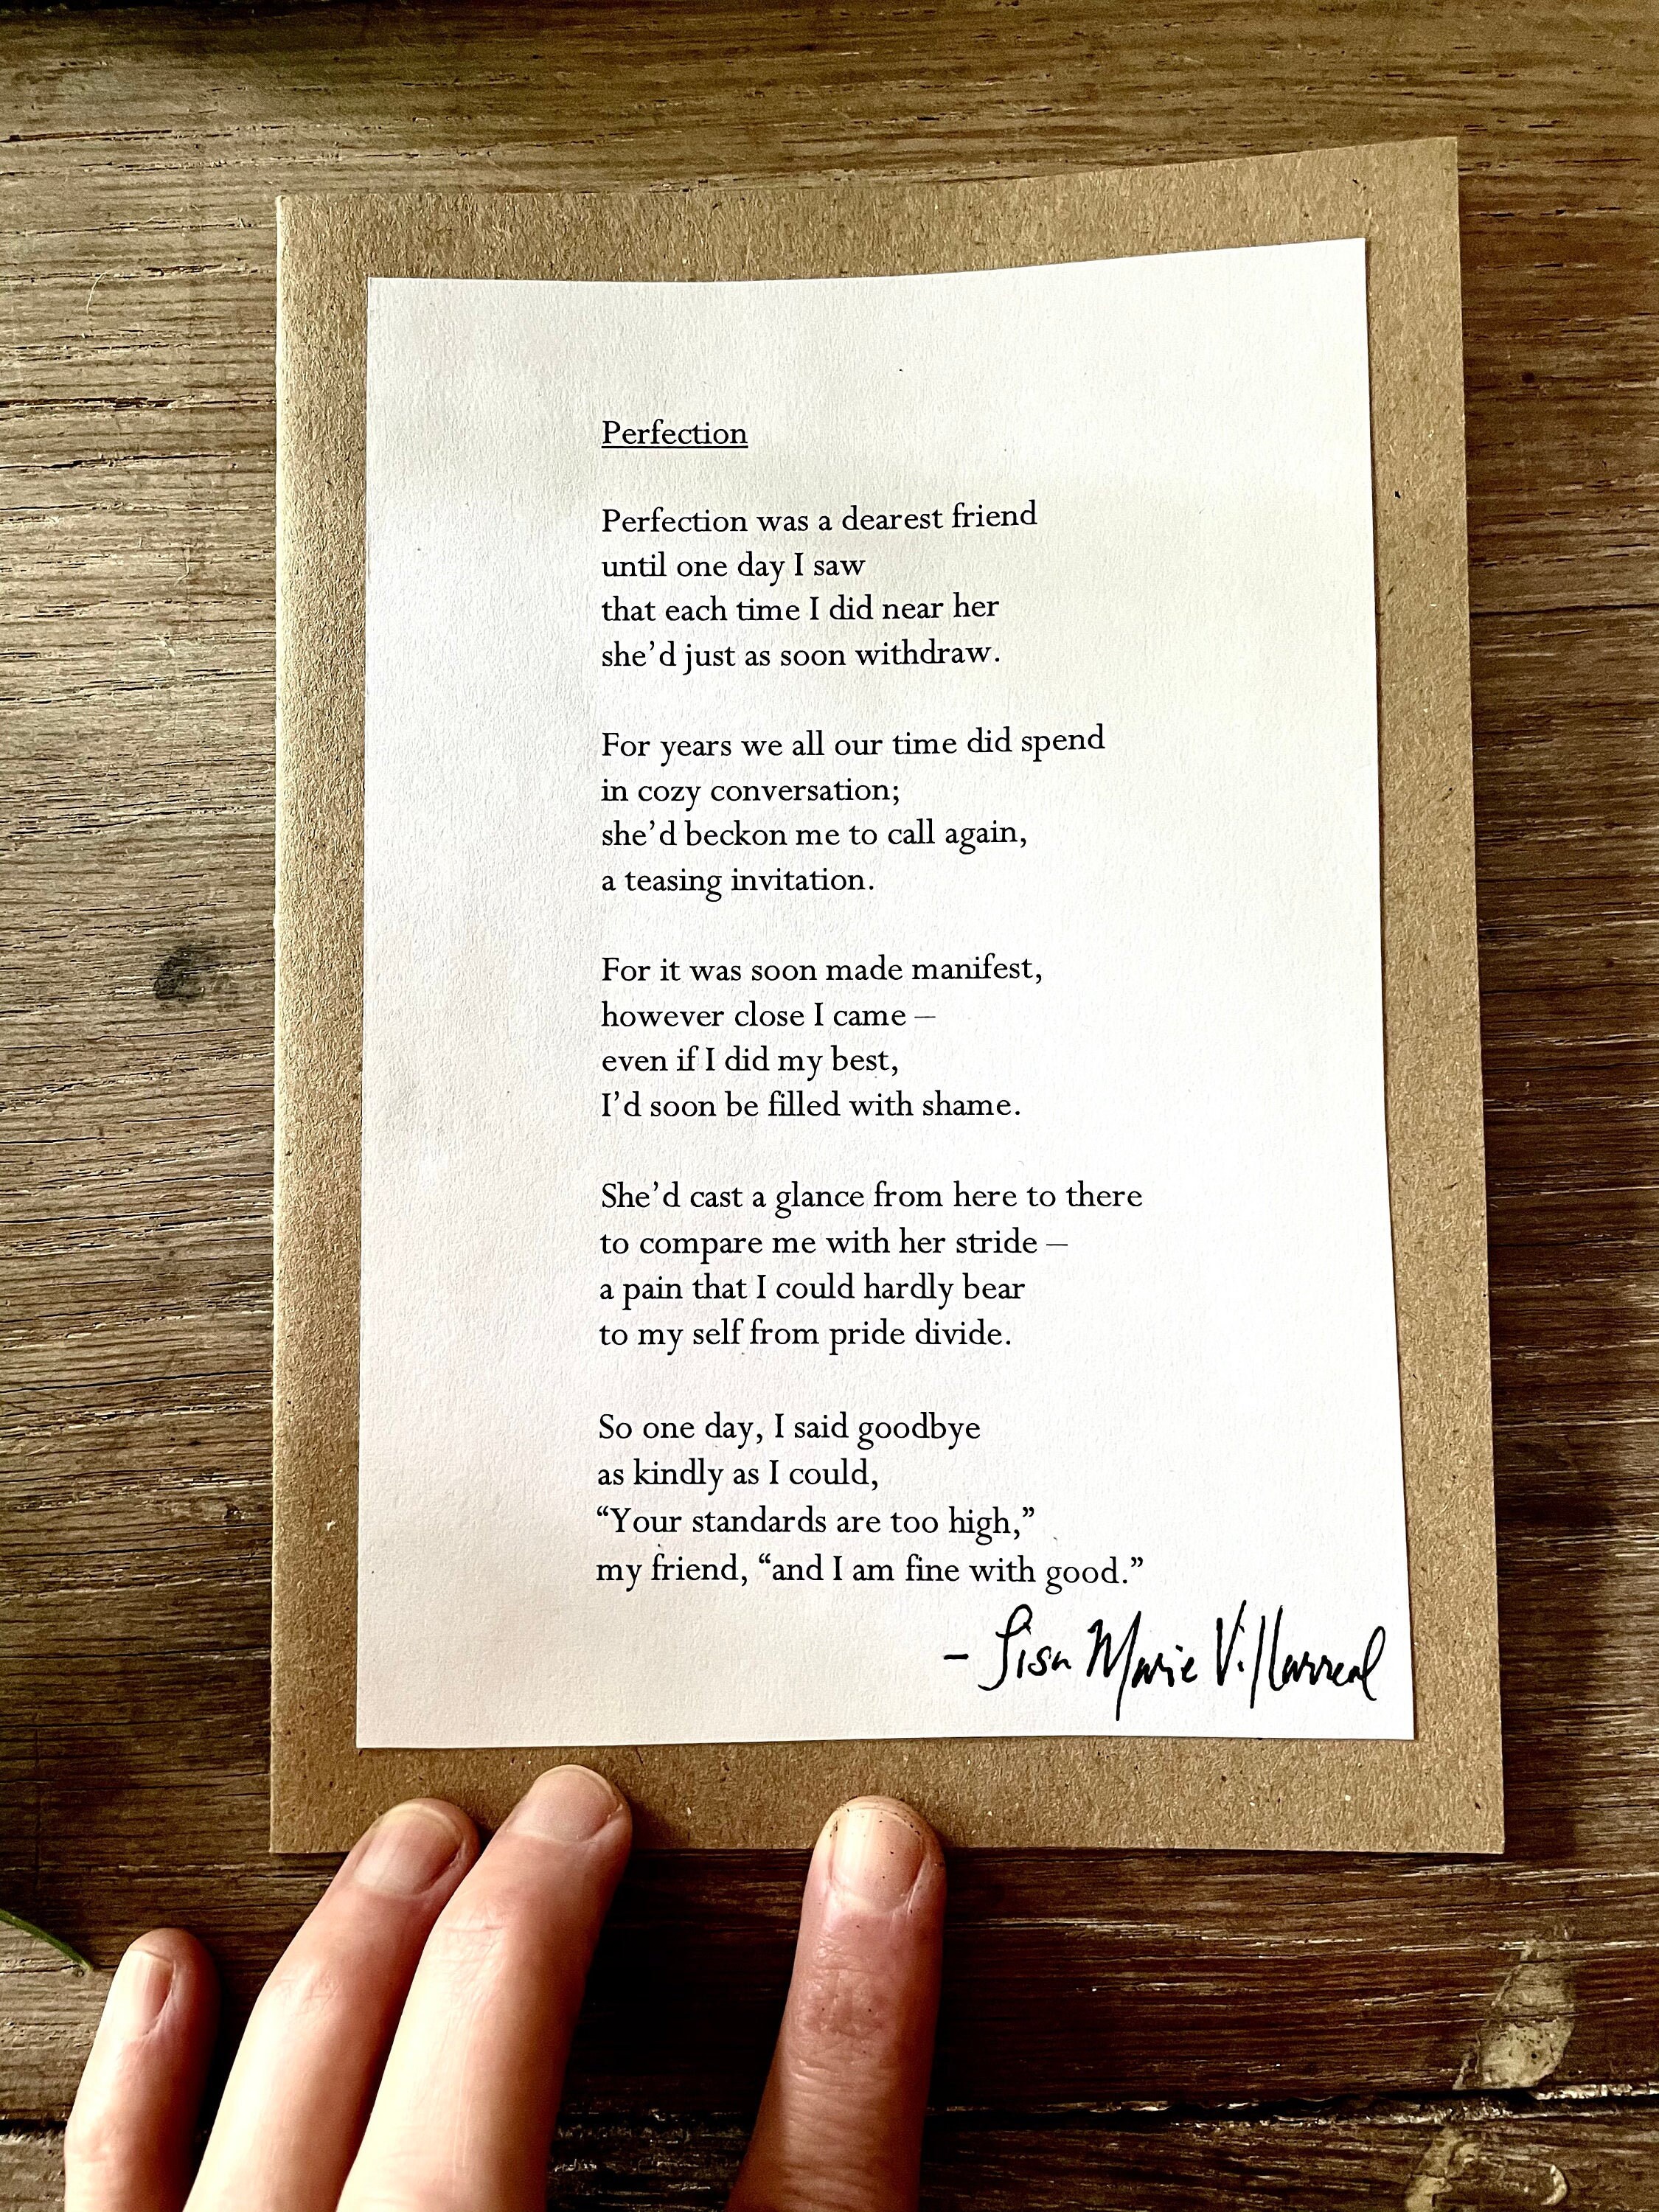 Perfection
Perfection was a dearest friend
until one day I saw
that each time I did near her
she’d just as soon withdraw.
For years we all our time did spend
in cozy conversation;
she’d beckon me to call again,
a teasing invitation.
For it was soon made manifest,
however close I came –
even if I did my best,
I’d soon be filled with shame.
She’d cast a glance from here to there
to compare me with her stride –
a pain that I could hardly bear
to my self from pride divide.
So one day, I said goodbye
as kindly as I could,
“Your standards are too high,”
my friend, “and I am fine with good.”
– Lisa Marie Villarreal